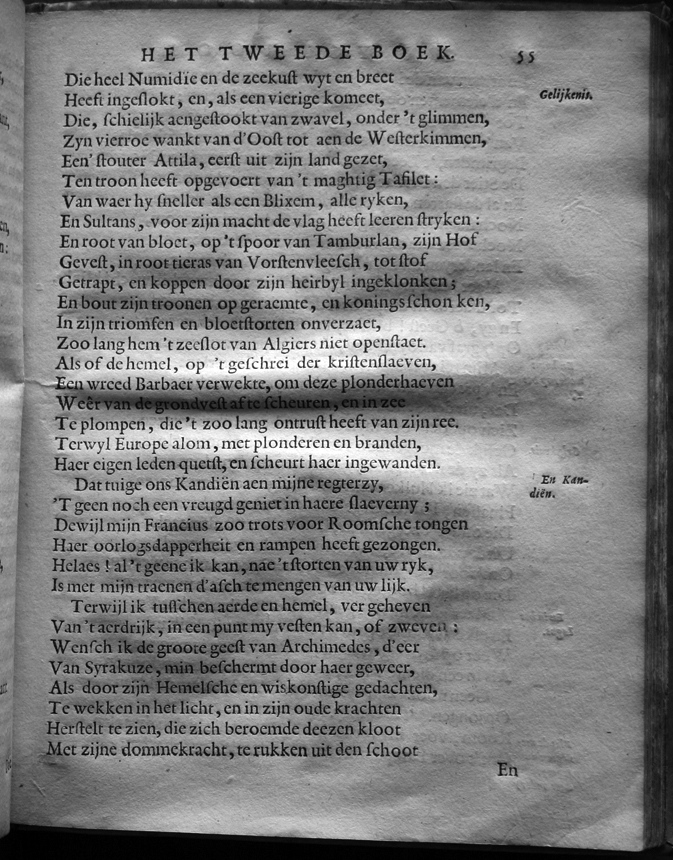 HET TWEEDE BOEK. 55
Die heel Numidïe en de zeekuſt wyt en breet
Heeft ingeſlokt, en, als een vierige komeet,
Gelijkenis.
Die, ſchielijk aengeſtookt van zwavel, onder 't glimmen,
Zyn vierroe wankt van d'Ooſt tot aen de Weſterkimmen,
Een' ſtouter Attila, eerſt uit zijn land gezet,
Ten troon heeft opgevoert van 't maghtig Tafilet:
Van waer hy ſneller als een Blixem, alle ryken,
En Sultans, voor zijn macht de vlag heeft leeren ſtryken:
En root van bloet, op 't ſpoor van Tamburlan, zijn Hof
Geveſt, in root tieras van Vorſtenvleeſch, tot ſtof
Getrapt, en koppen door zijn heirbyl ingeklonken;
En bout zijn troonen op geraemte, en konings ſchonken,
In zijn triomfen en bloetſtorten onverzaet,
Zoo lang hem 't zeeſlot van Algiers niet openſtaet.
Als of de hemel, op 't geſchrei der kriſtenſlaeven,
Een wreed Barbaer verwekte, om deze plonderhaeven
Weêr van de grondveſt af te ſcheuren, en in zee
Te plompen, die 't zoo lang ontruſt heeft van zijn ree.
Terwyl Europe alom, met plonderen en branden,
Haer eigen leden quetſt, en ſcheurt haer ingewanden.
Dat tuige ons Kandiën aen mijne regterzy,
En Kan-
diën.
'T geen noch een vreugd geniet in haere ſlaeverny;
Dewijl mijn Francius zoo trots voor Roomſche tongen
Haer oorlogsdapperheit en rampen heeft gezongen.
Helaes! al 't geene ik kan, nae 't ſtorten van uw ryk,
Is met mijn traenen d'aſch te mengen van uw lijk.
Terwijl ik tuſſchen aerde en hemel, ver geheven
Van 't aerdrijk, in een punt my veſten kan, of zweven:
Wenſch ik de groote geeſt van Archimedes, d'eer
Van Syrakuze, min beſchermt door haer geweer,
Als door zijn Hemelſche en wiskonſtige gedachten,
Te wekken in het licht, en in zijn oude krachten
Herſtelt te zien, die zich beroemde deezen kloot
Met zijne dommekracht, te rukken uit den ſchoot
En